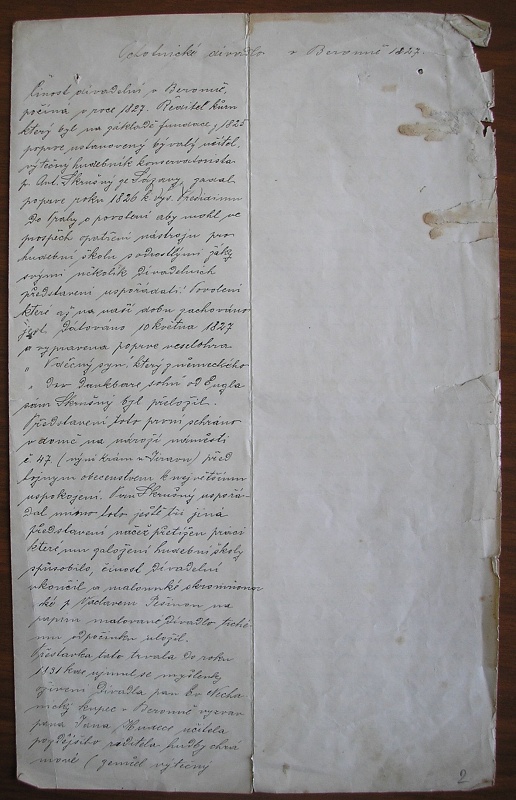 Ochotnické divadlo v Berouně 1827.
Činost divadelní v Berouně,
počíná v roce 1827. Ředitel kůru
který byl na základě fundace z 1825
poprve ustanovený byvalý učitel,
výtečný hudebník konservatorista
p. Ant. Skrušný ze Sázavy, zadal
poprve roku 1826 k Vys. Presidiumu
do Prahy o povolení aby mohl ve
prospěch opatření nástrojů pro
hudební školu s odrostlými žáky
svými několik divadelních
představení uspořádati. Povolení
které až na naší dobu zachováno
jest. Datováno 10 května 1827
a vypravena poprve veselohra
„ Vděčný syn", který z německého
„ Der Dankbare sohn od Engla
sám Skrušný byl přeložil.
Představení toto první sehráno
v domě na nároží náměstí
č 47 ( nyní krám u ) před
četným obecenstvem k největšímu
uspokojení. Pan Skrušný uspořá-
dal mimo toto ještě tři jiná
představení načež přetížen prací
kterému založení hudební školy
spůsobilo, činost divadelní
ukončil a malounké skromounce
ké p Václavem na
papíru malované divadlo tiché-
mu odpočinku uložil.
Přestávka tato trvala do roku
1831 kde ujmul se myšlenky
oživení Divadla pan
kupec v Berouně vyzvav
pana Jana učitele
pozdějšího ředitele hudby chrá
mové ( zemřel výtečný
2